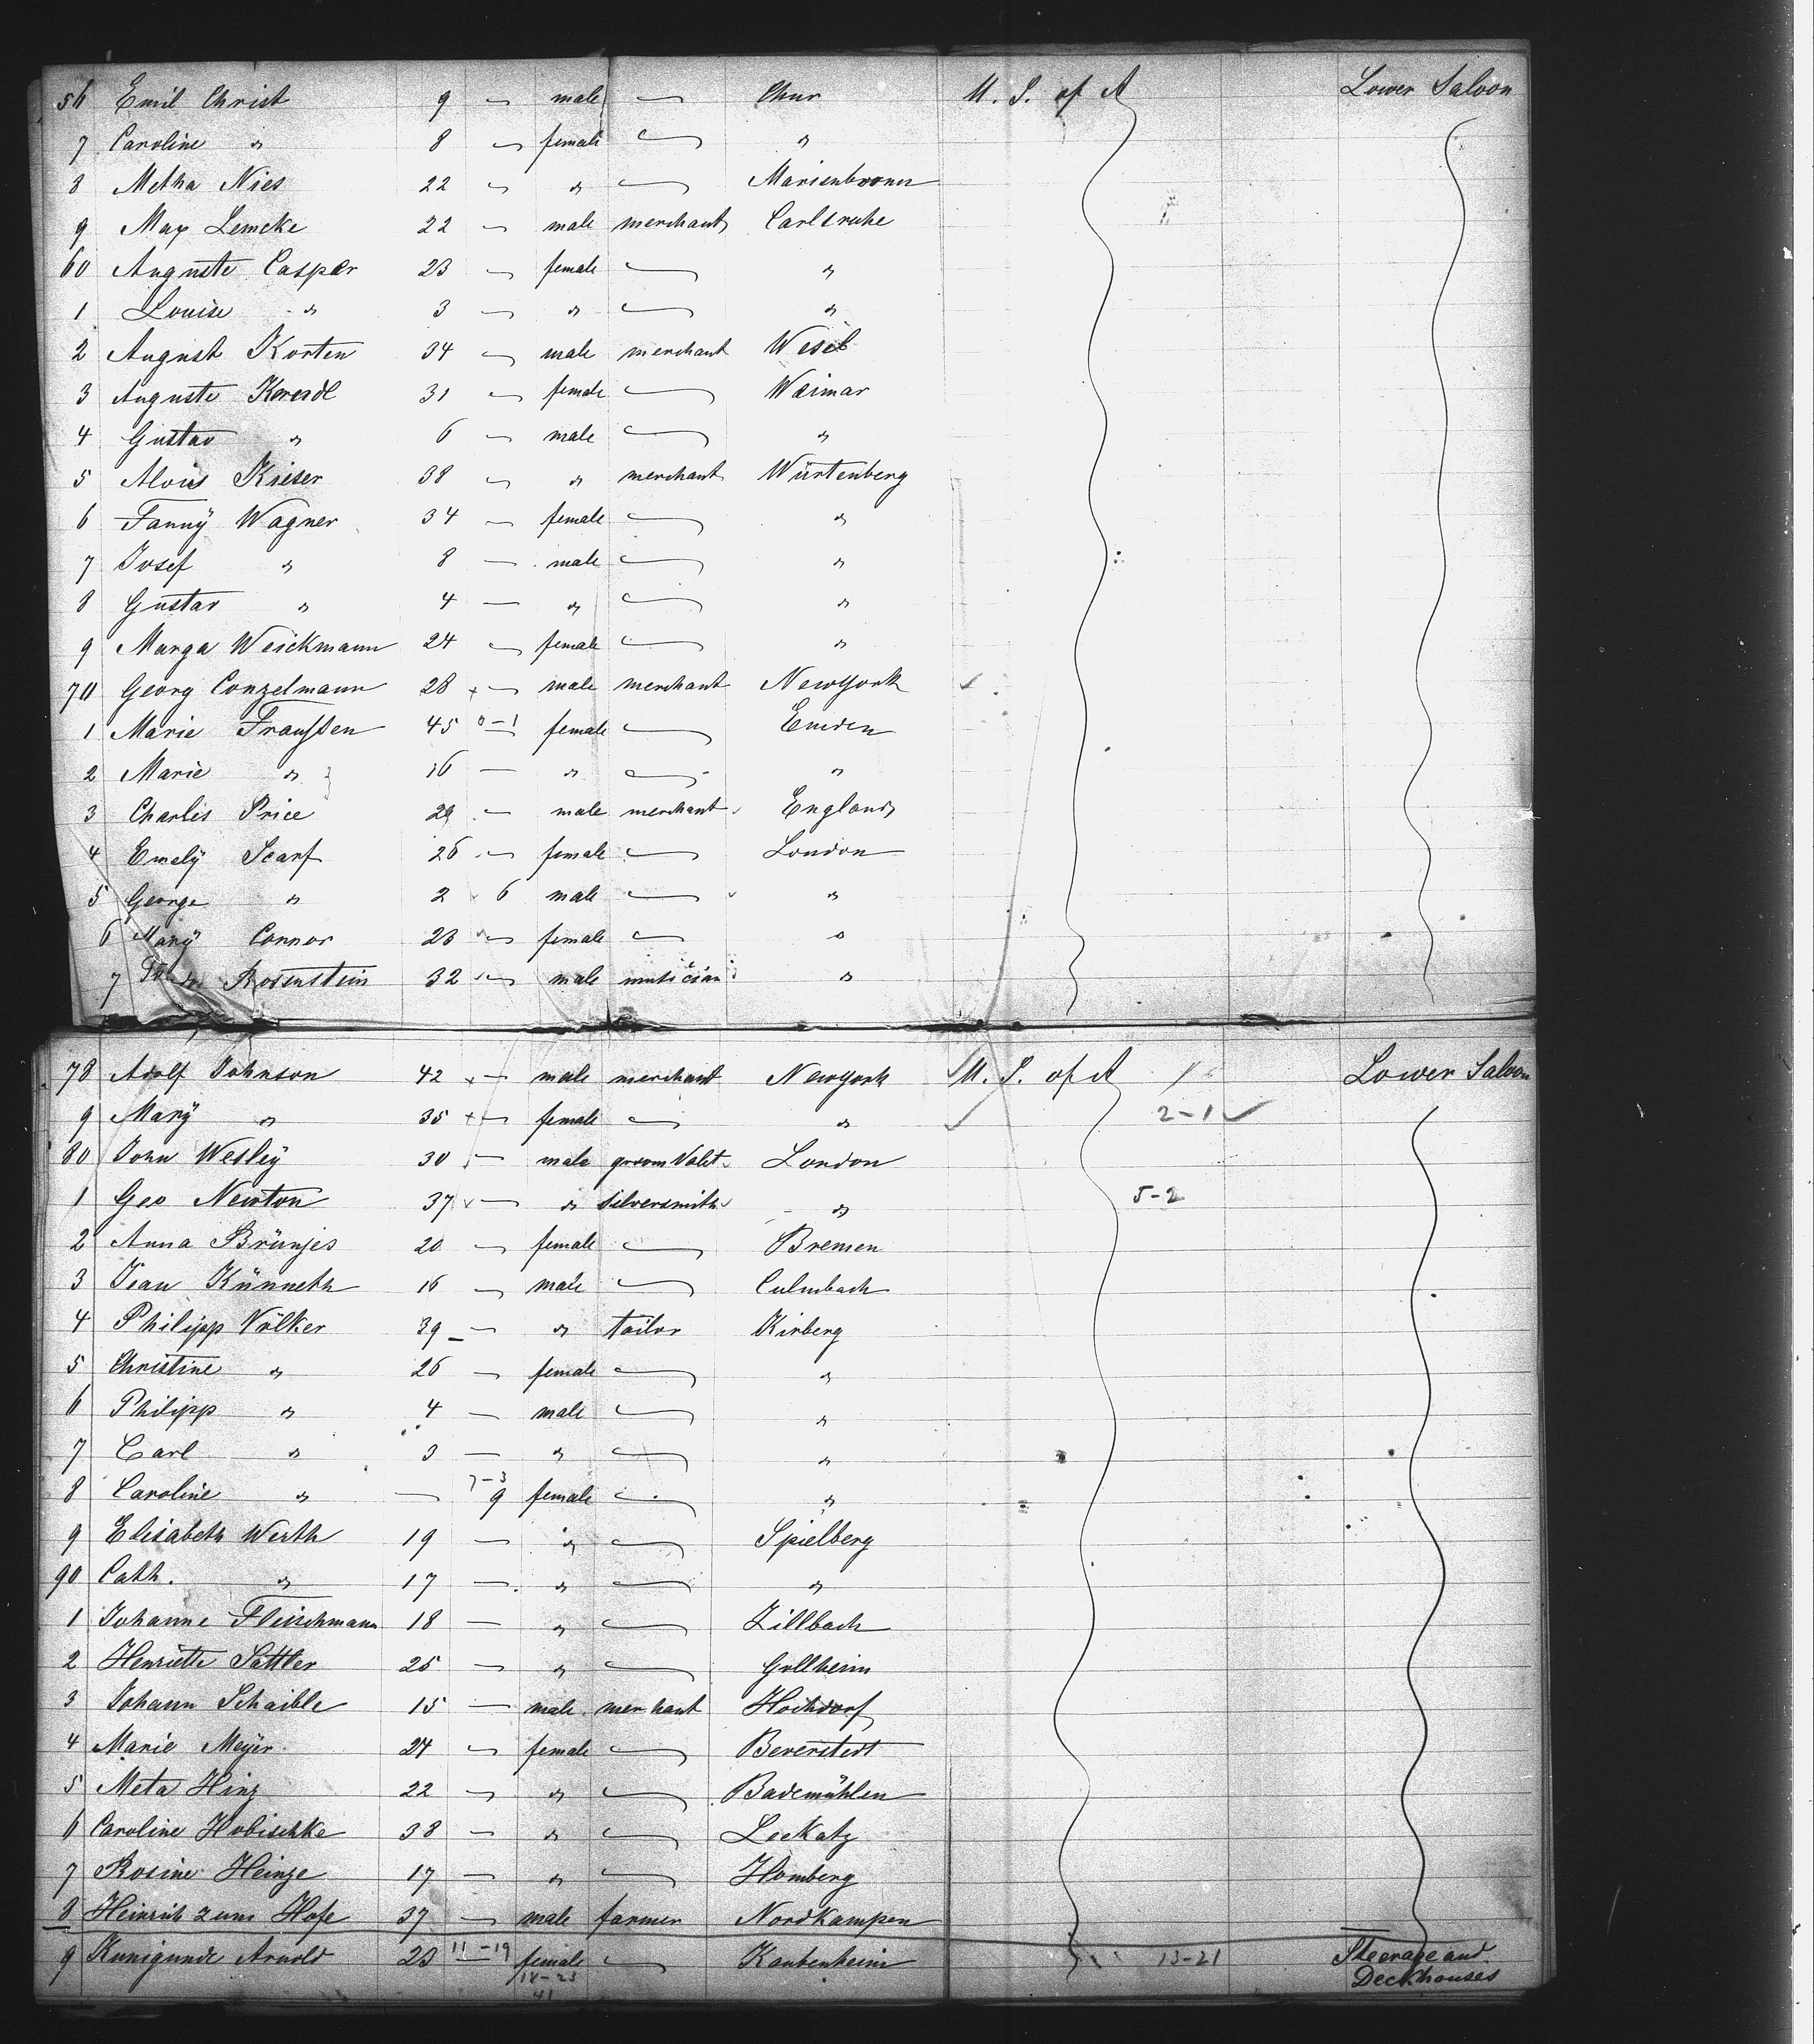 56 Emil Christ 9 — male — Chur U. S. of A Lower Saloon
7 Caroline " 8 — female — "
8 Metha Nies 22 — " — Marienbronn
9 Max Lemcke 22 — male merchant Carlsruhe
60 Auguste Casper 23 — female — "
1 Louise " 3 — " — "
2 August Korten 34 — male merchant Wesel
3 Auguste 31 — female — Weimar
4 Gustav " 6 — male — "
5 Alois Kieser 38 — " merchant Würtenberg
6 Fanny Wagner 34 — female — "
7 Josef " 8 — male — "
8 Gustav " 4 — " — "
9 Marga Weickmann 24 — female — "
70 Georg Conzelmann 28 x — male merchant Newyork ✓
1 Marie Franssen 45 0-1 — female — Emden
2 Marie " 16 — " — "
3 Charles Price 29 — male merchant England
4 Emely Scarf 26 — female — London
5 George " 2 6 male — "
6 Mary Connor 23 — female — "
7 Rosenstein 32 — male musician "
78 Adolf Johnson 42 x — male merchant Newyork ✓ U. S. of A Lower Saloon
9 Mary " 35 x — female — " ✓ 2-1 ✓
80 John Wesley 30 — male groom Valet London
1 Geo Newton 37 x — " silversmith " 5-2
2 Anna Brünjes 20 — female — Bremen
3 Jean Künneth 16 — male — Culmbach
4 Philipp Völker 39 — " tailor Kirberg
5 Christine " 26 — female — "
6 Philipp " 4 — male — "
7 Carl " 3 — " — "
8 Caroline " — 7-3 9 female — "
9 Elisabeth Werth 19 — " — Spielberg
90 Cath. " 17 — " — "
1 Johanne Fleischmann 18 — " — Zillbach
2 Henriette Sattler 25 — " — Gollheim
3 Johann Schaible 15 — male merchant Hochdorf
4 Marie Meyer 24 — female — Beverstedt
5 Meta Hinz 22 — " — Bademühlen
6 Caroline Hobischke 38 — " — Leckatz
7 Rosine Heinze 17 — " — Homberg
8 Heinrich zum Hofe 37 — male farmer Nordkampen
9 Kunigunde Arnold 23 11-19 — female — Kaubenheim 13-21 Steerage and
Deckhouses
14-23
41